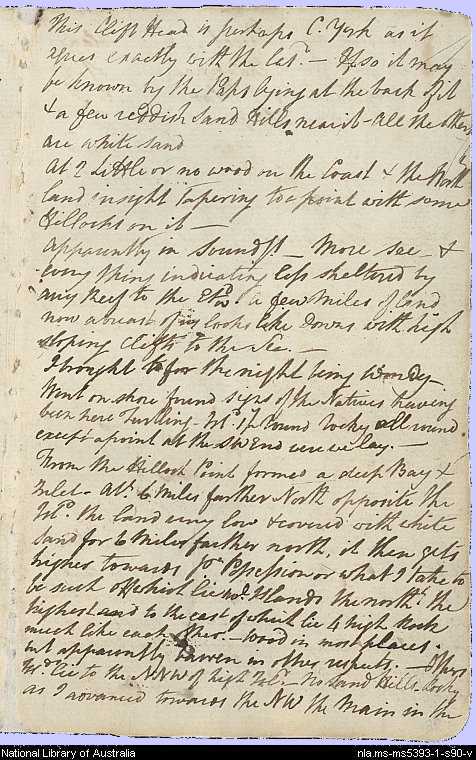 This Cliff Head is perhaps C. York as it
agrees exactly with the Lat.d — If so it may
be known by the Paps laying at the back of it
& a few reddish Sand Hills near it — All the others
are white sand
At 2 Little or no wood on the Coast & the North
land in sight tapering to a point with some
Hillocks on it —
Apparently in Sound.gs — More sea — &
every thing indicating less sheltered by
any Reef to the Etw.d a few miles of land
now abreast of us looks like Downs with high
sloping Clifts to the Sea. —
Thought for the night being Windy
Went on shore found signs of the Natives having
been here Turtling — Isl.d round Rocky all round
except a point at the SW End were we lay. —
From the Hillock Point formed a deep Bay &
Inlet — Abt. 6 Miles farther North opposite the
Isl.d the land very low & covered with white
sand for 6 Miles farther north, it then gets
higher towards Possession or what I take to
be such off which lie Islands the north.t the
highest and to the east of which lie 4 high Rock
much like each other. — Wood in most places.
but apparently barren in other respects. —
lie to the NNW of high Isl.d — No Sand Hills
as I advanced towards the NW the Main in the
National Library of Australia
nla.ms-ms5393-1-s90-v